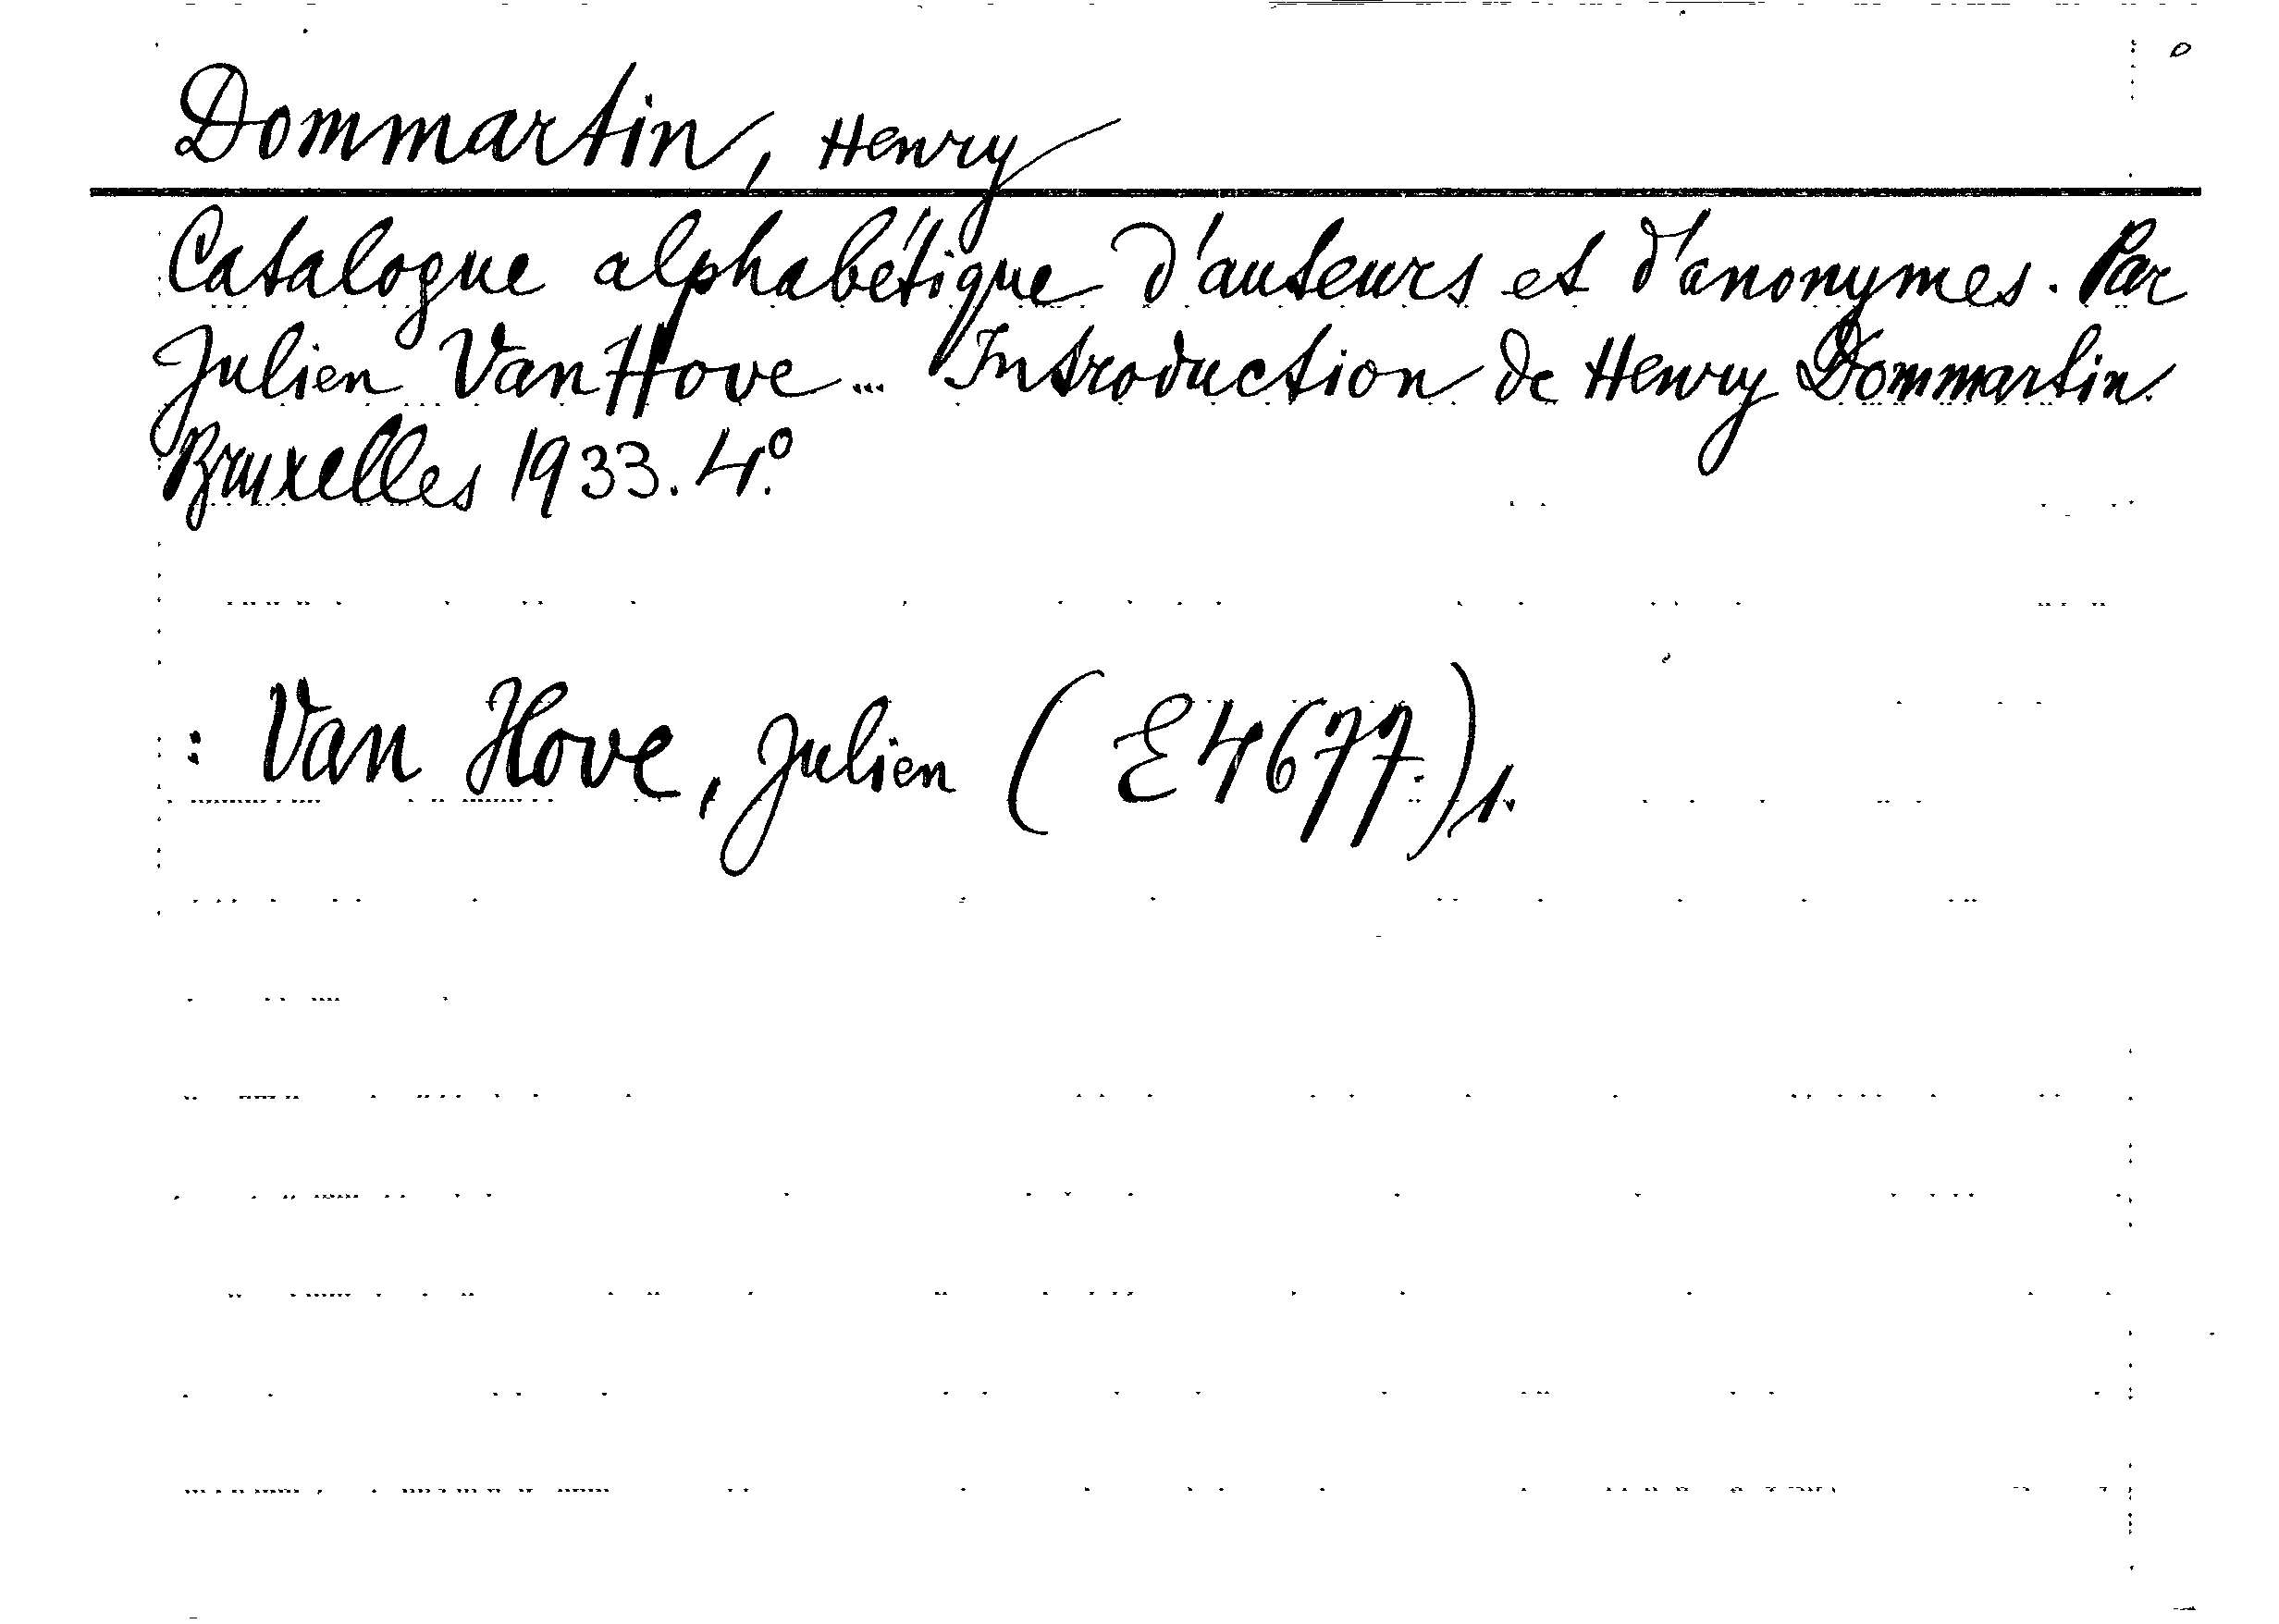 Dommartin, Henry
Catalogue alphabétique d'auteurs et d'anonymes. Par
Julien Van Hove... Introduction de Henry Dommartin.
Bruxelles 1933. 4°.
: Van Hove, Julien (E4677.)1.